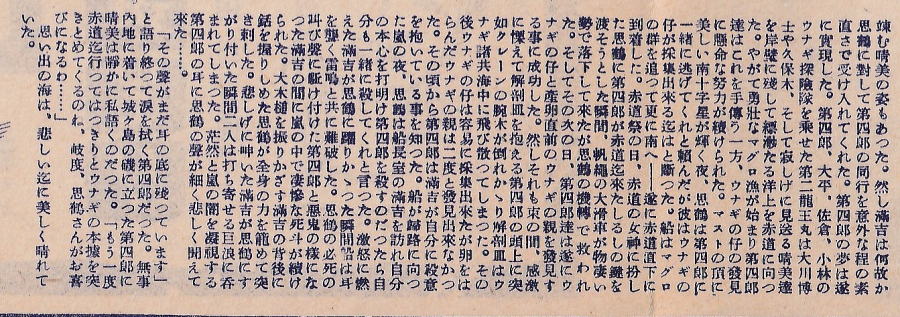 竦む晴美の姿もあつた。然し滿吉は何故か
思鶴に對して第四郎の同行を意外な程の素
直さで受け入れてくれた。第四郎の夢は遂
に實現した。第四郎、大平、佐倉、小林の
ウナギ探險隊を乗せた第二龍王丸は大川博
士や久保木、そして寂しげに見送る晴美達
を岸壁に残して縹渺たる洋上を赤道に向つ
た。やがて勇壮なマグロ漁が始まり第四郎
達はこれを手傳う一方、ウナギの仔の發見
に懸命な努力が續けられた。マストの頂に
美しい南十字星が輝く夜、思鶴は第四郎に
一緒に逃げてくれと頼んだが彼はウナギの
仔が採集出來る迄はと斷つた。船はマグロ
の群を追つて更に南へ――遂に赤道直下に
到着した。赤道祭の日、赤道の女神に扮し
た思鶴に第四郎が赤道迄來たしるしの鍵を
渡そうとした瞬間、帆繩の大滑車が物凄い
勢で落下して來たが思鶴の機轉で救われ
た。そしてその次の日、第四郎達は遂にウ
ナギの仔と産卵直前のウナギの親を採集す
る事に成功した。然しそれも束の間、感激
に慄えて解剖皿を抱える第四郎の頭上に突
如クレーンの腕木が倒れかゝり解剖皿はウ
ナギ諸共海中に飛び散つてしまつた。その
後ウナギの仔は容易に採集出來たが卵をは
らんだウナギの親は二度と發見出來なかつ
た。その頃から第四郎は滿吉が自分に殺意
を抱いている事を知つた。船が歸路に向つ
た嵐の夜、思鶴は船長室の滿吉を訪れ自分
の本心を打明け第四郎を殺すのだつたら自
分も一緒に殺してくれと言つた。激怒に燃
えた滿吉が思鶴に躍りかゝつた瞬間船は耳
を聾く雷鳴と共に難破した。思鶴の必死な
叫び聲に駈け付けた第四郎と悪鬼の様にな
つた滿吉の間に嵐の中で凄惨な死斗が續け
られた。大木槌を振りかざす滿吉の背後に
銛を握りしめた思鶴が全身の力を籠めて突
き刺した。悲しげに呻いた滿吉が思鶴にす
がり付いた瞬間二人は打ち寄せる巨浪に呑
まれてしまつた。茫然と嵐の闇を凝視する
第四郎の耳に思鶴の聲が細く悲しく聞えて
來た……。
「その聲がまだ耳の底に残つています」
と語り終つて涙を拭く第四郎だつた。無事
内地に着いて城ヶ島の磯に立つた第四郎に
晴美は靜かに私語くのだつた。「もう一度
赤道迄行つてはつきりとウナギの本據を突
きとめてくるのね、岐度、思鶴さんがお喜
びになるわ……」
思い出の海は、悲しい迄に美しく晴れて
いた。